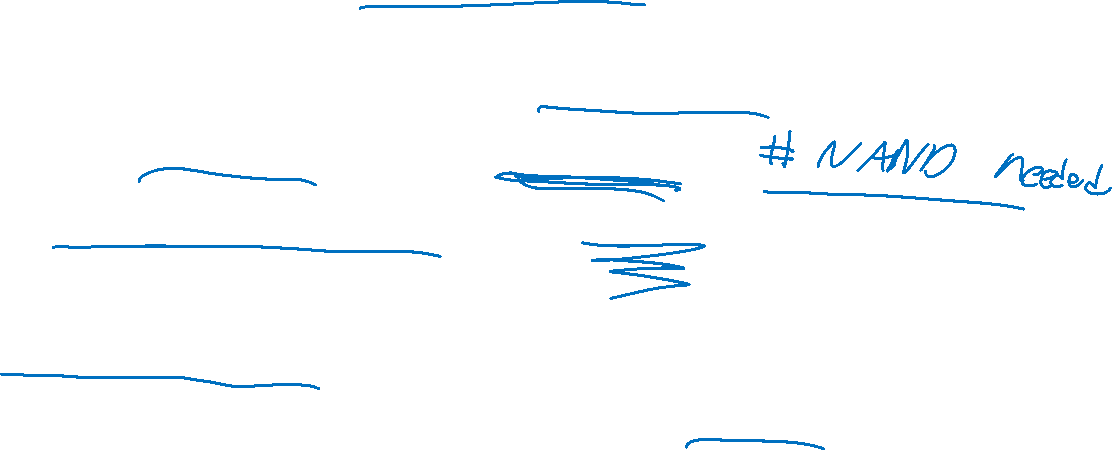 # NAND needed